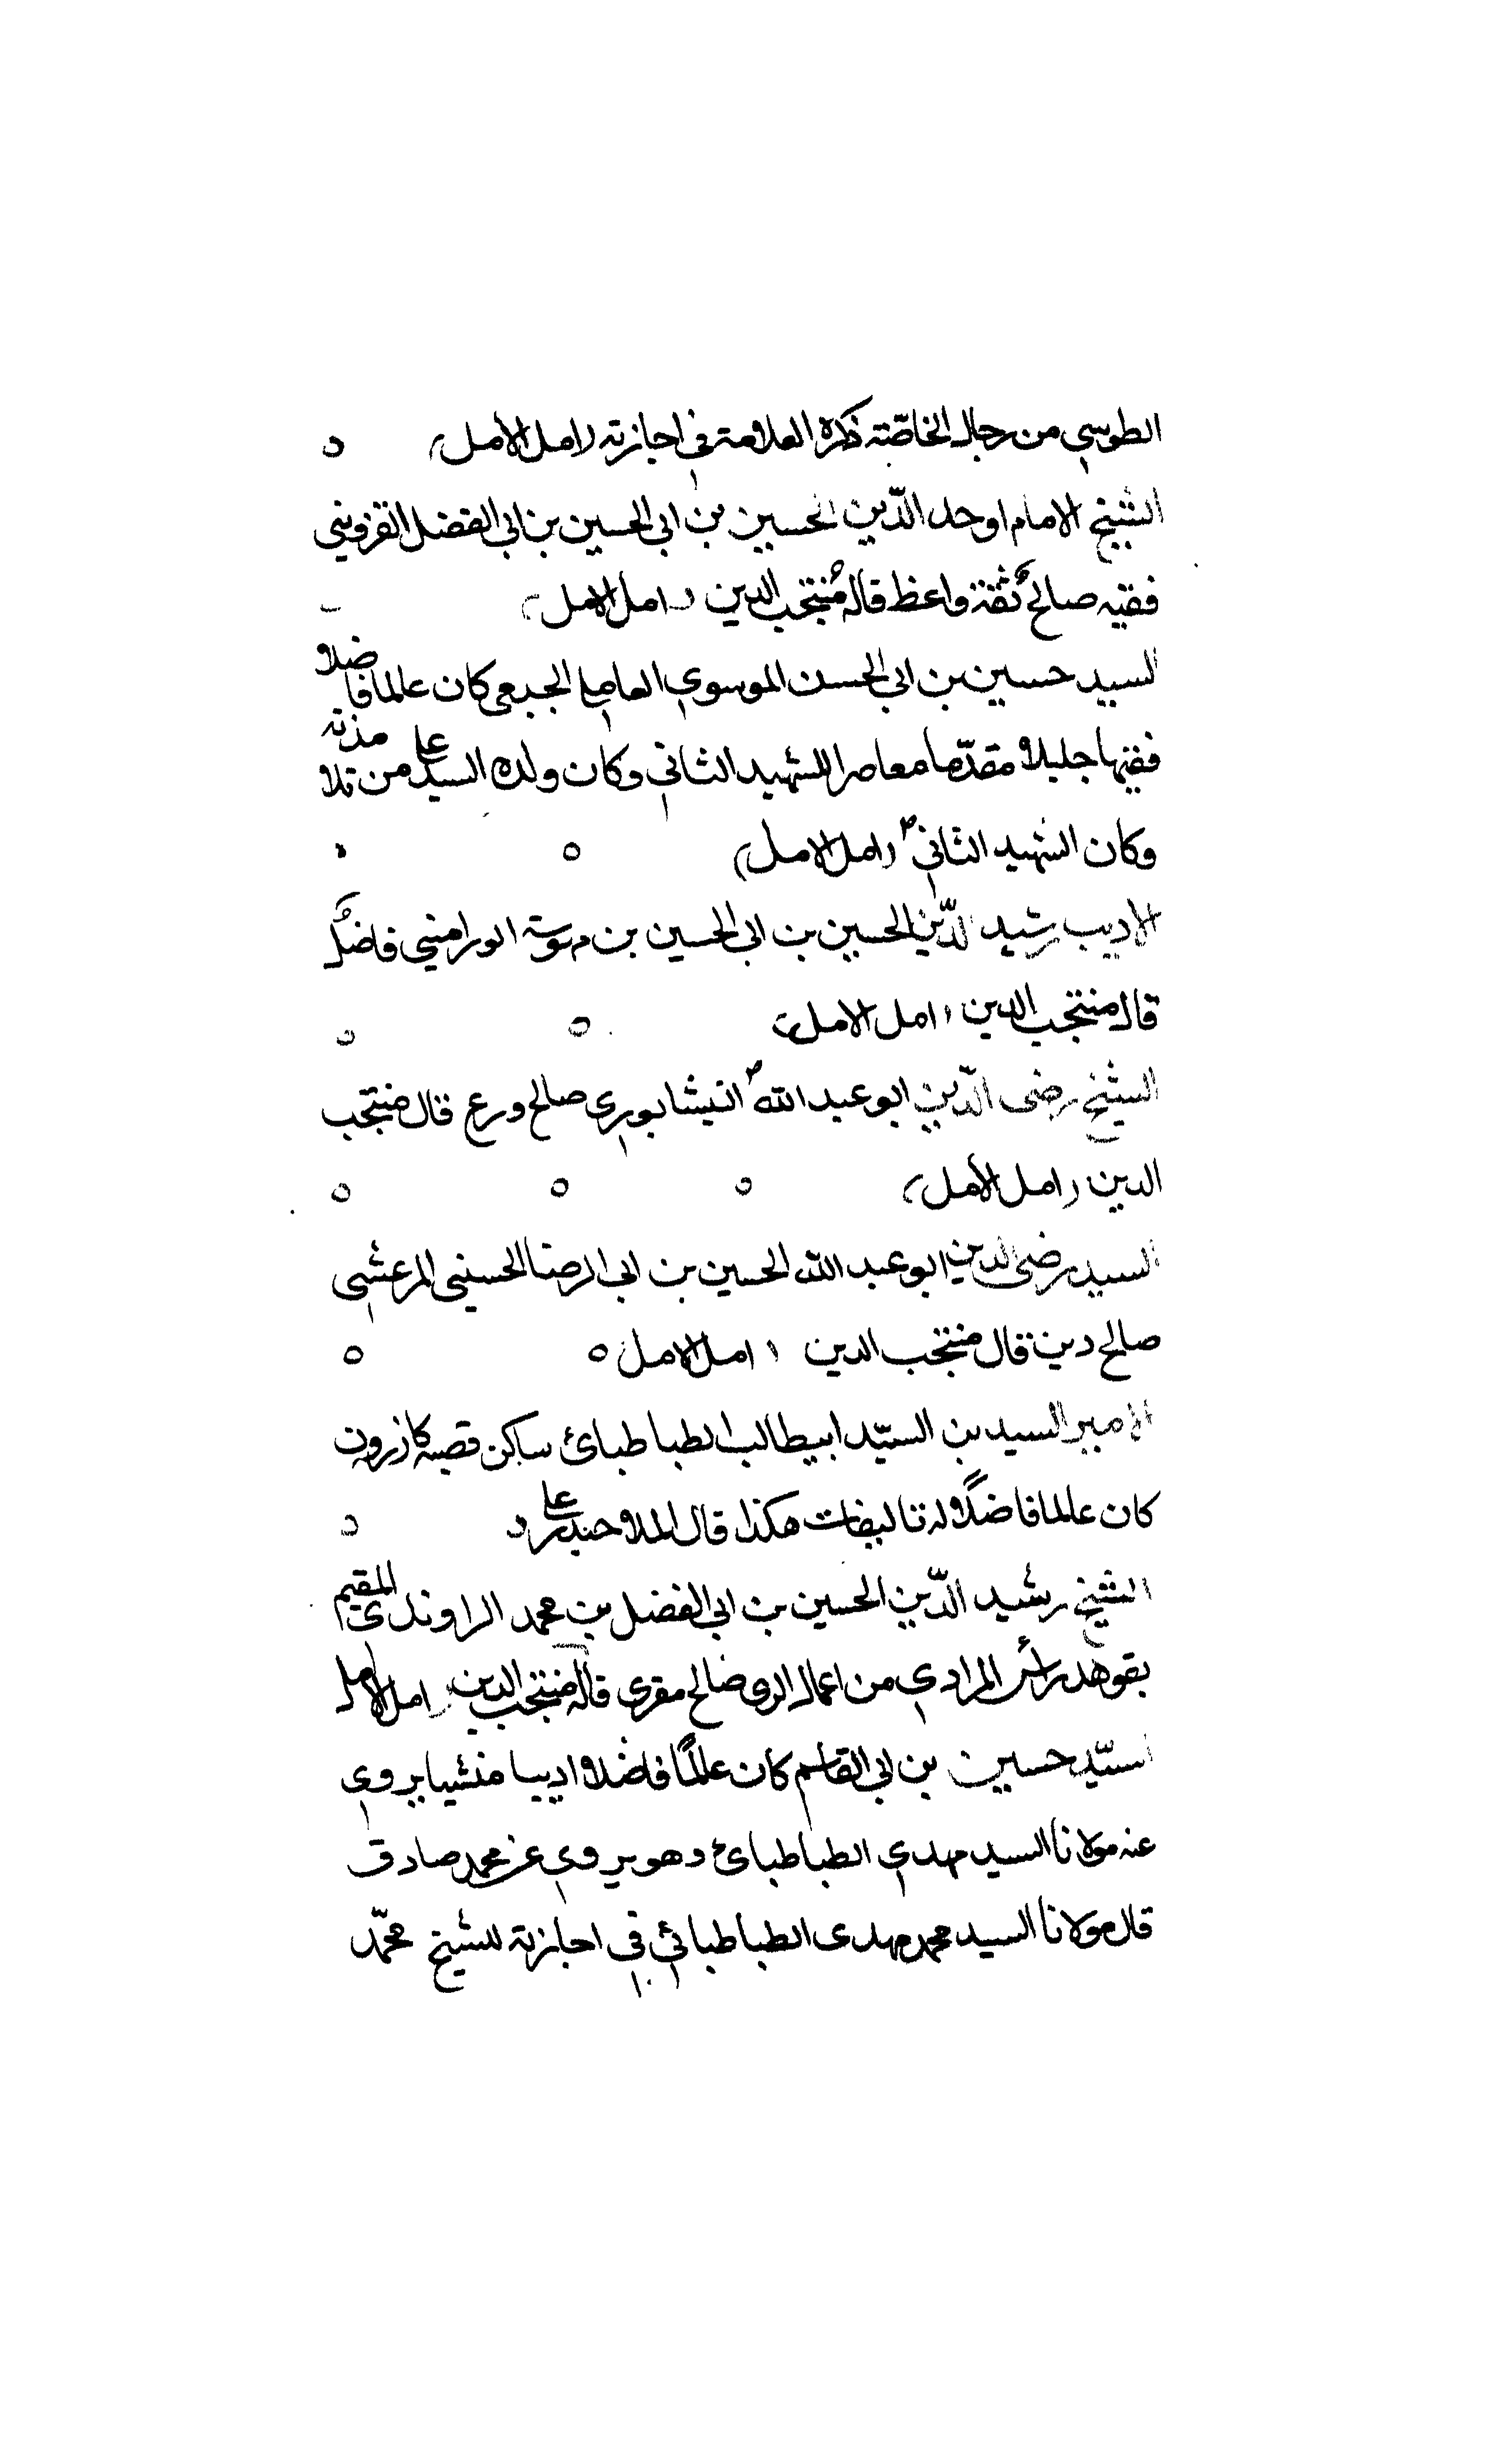 الطوسي من رجال الخاصّة ذكره العلامة في اجازته (امل الأمل)
الشيخ الامام اوحد الدّين الحسين بن ابي الحسين بن ابي الفضل القزويني
فقيه صالحٌ ثقة واعظ قاله مُنتجب الدين (امل الامل)
السيد حسين بن ابي الحسن الموسوي العاملي الجبعي كان عالما فاضلا
فقيها جليلا مقدّما معاصرا للشهيد الثاني وكان ولده السيد علي من تلامذته
وكان الشهيد الثاني (امل الامل)
الاديب رشيد الدّين الحسين بن ابي الحسين بن موسة الوراميني فاضلٌ
قال منتجب الدين (امل الامل)
الشيخ رضى الدّين ابو عبد الله النيشابوري صالح ورع قال منتجب
الدين (امل الأمل)
السيد رضى الدين ابو عبد الله الحسين بن ابي الرضا الحسيني المرعشي
صالح دين قال منتجب الدين (امل الامل
الامير السيد بن السيّد ابيطالب الطباطبائ ساكن قصبه كازرون
كان عالما فاضلاً وله تاليفات هكذا قال الملا حيدر علي
الشيخ رشيد الدّين الحسين بن ابي الفضل بن محمد الراوندي المقيم
بقوهد رأس المرادي من اعمال الري صالح مقرى قاله منتجب الدين (امل الامل
السيّد حسين بن ابي القاسم كان عالمًا فاضلا اديبا منشيا يروي
عنه مولانا السيد مهدي الطباطبائ وهو يروي عن محمد صادق
قال مولانا السيد محمد مهدى الطباطبائي في اجازته للشيخ محمّد